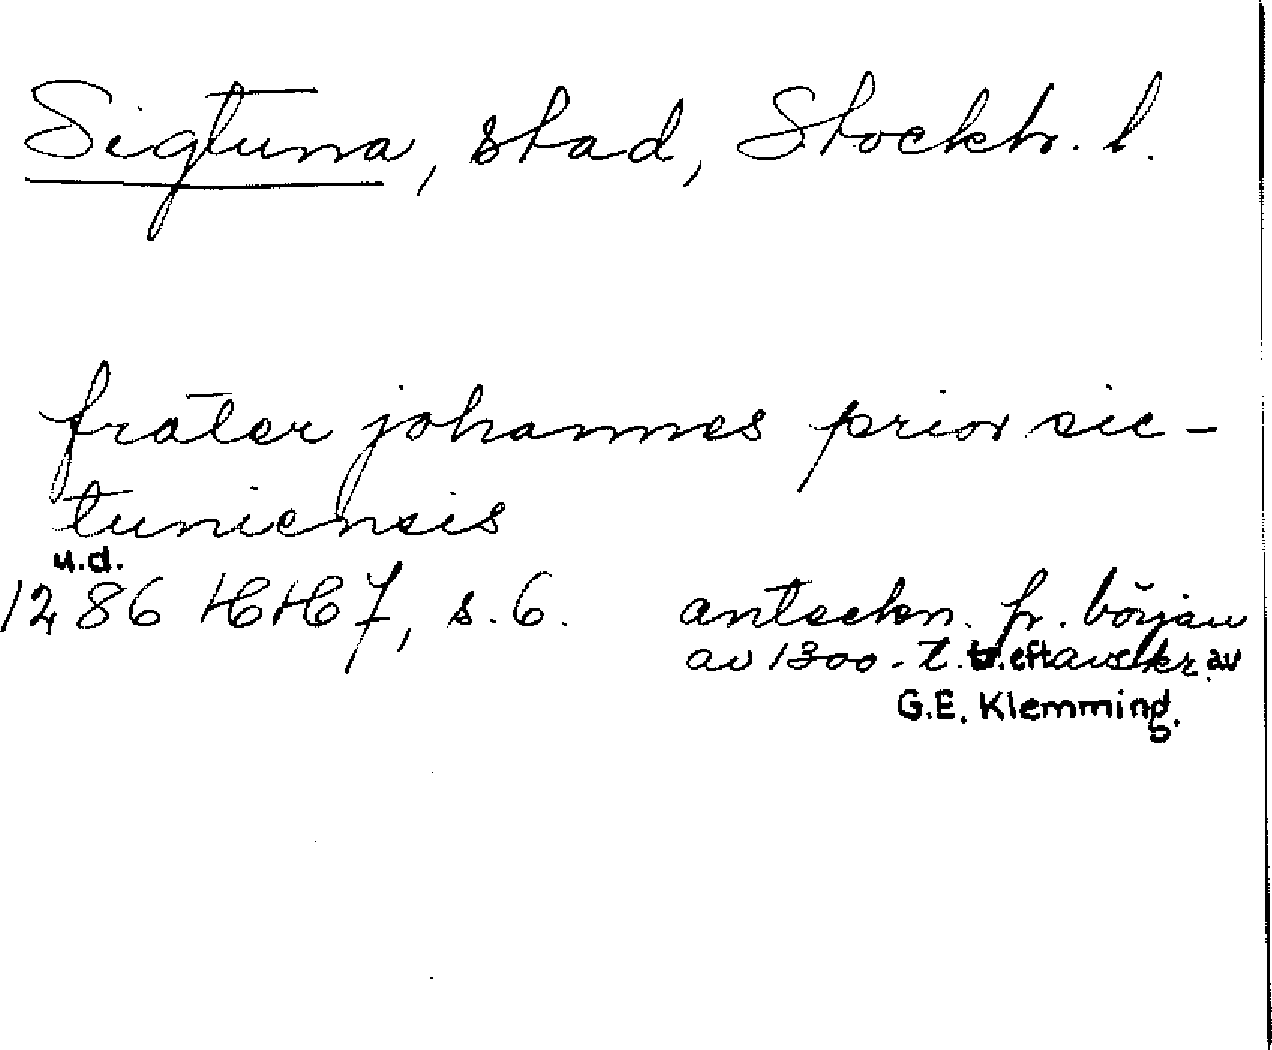 Sigtuna, stad, Stockh. l.
frater johannes prior sic-
tuniensis
u.d.
1286 HH 7, s. 6. anteckn. fr. början
av 1300-t. tr. eft avskr. av
G.E. Klemming.